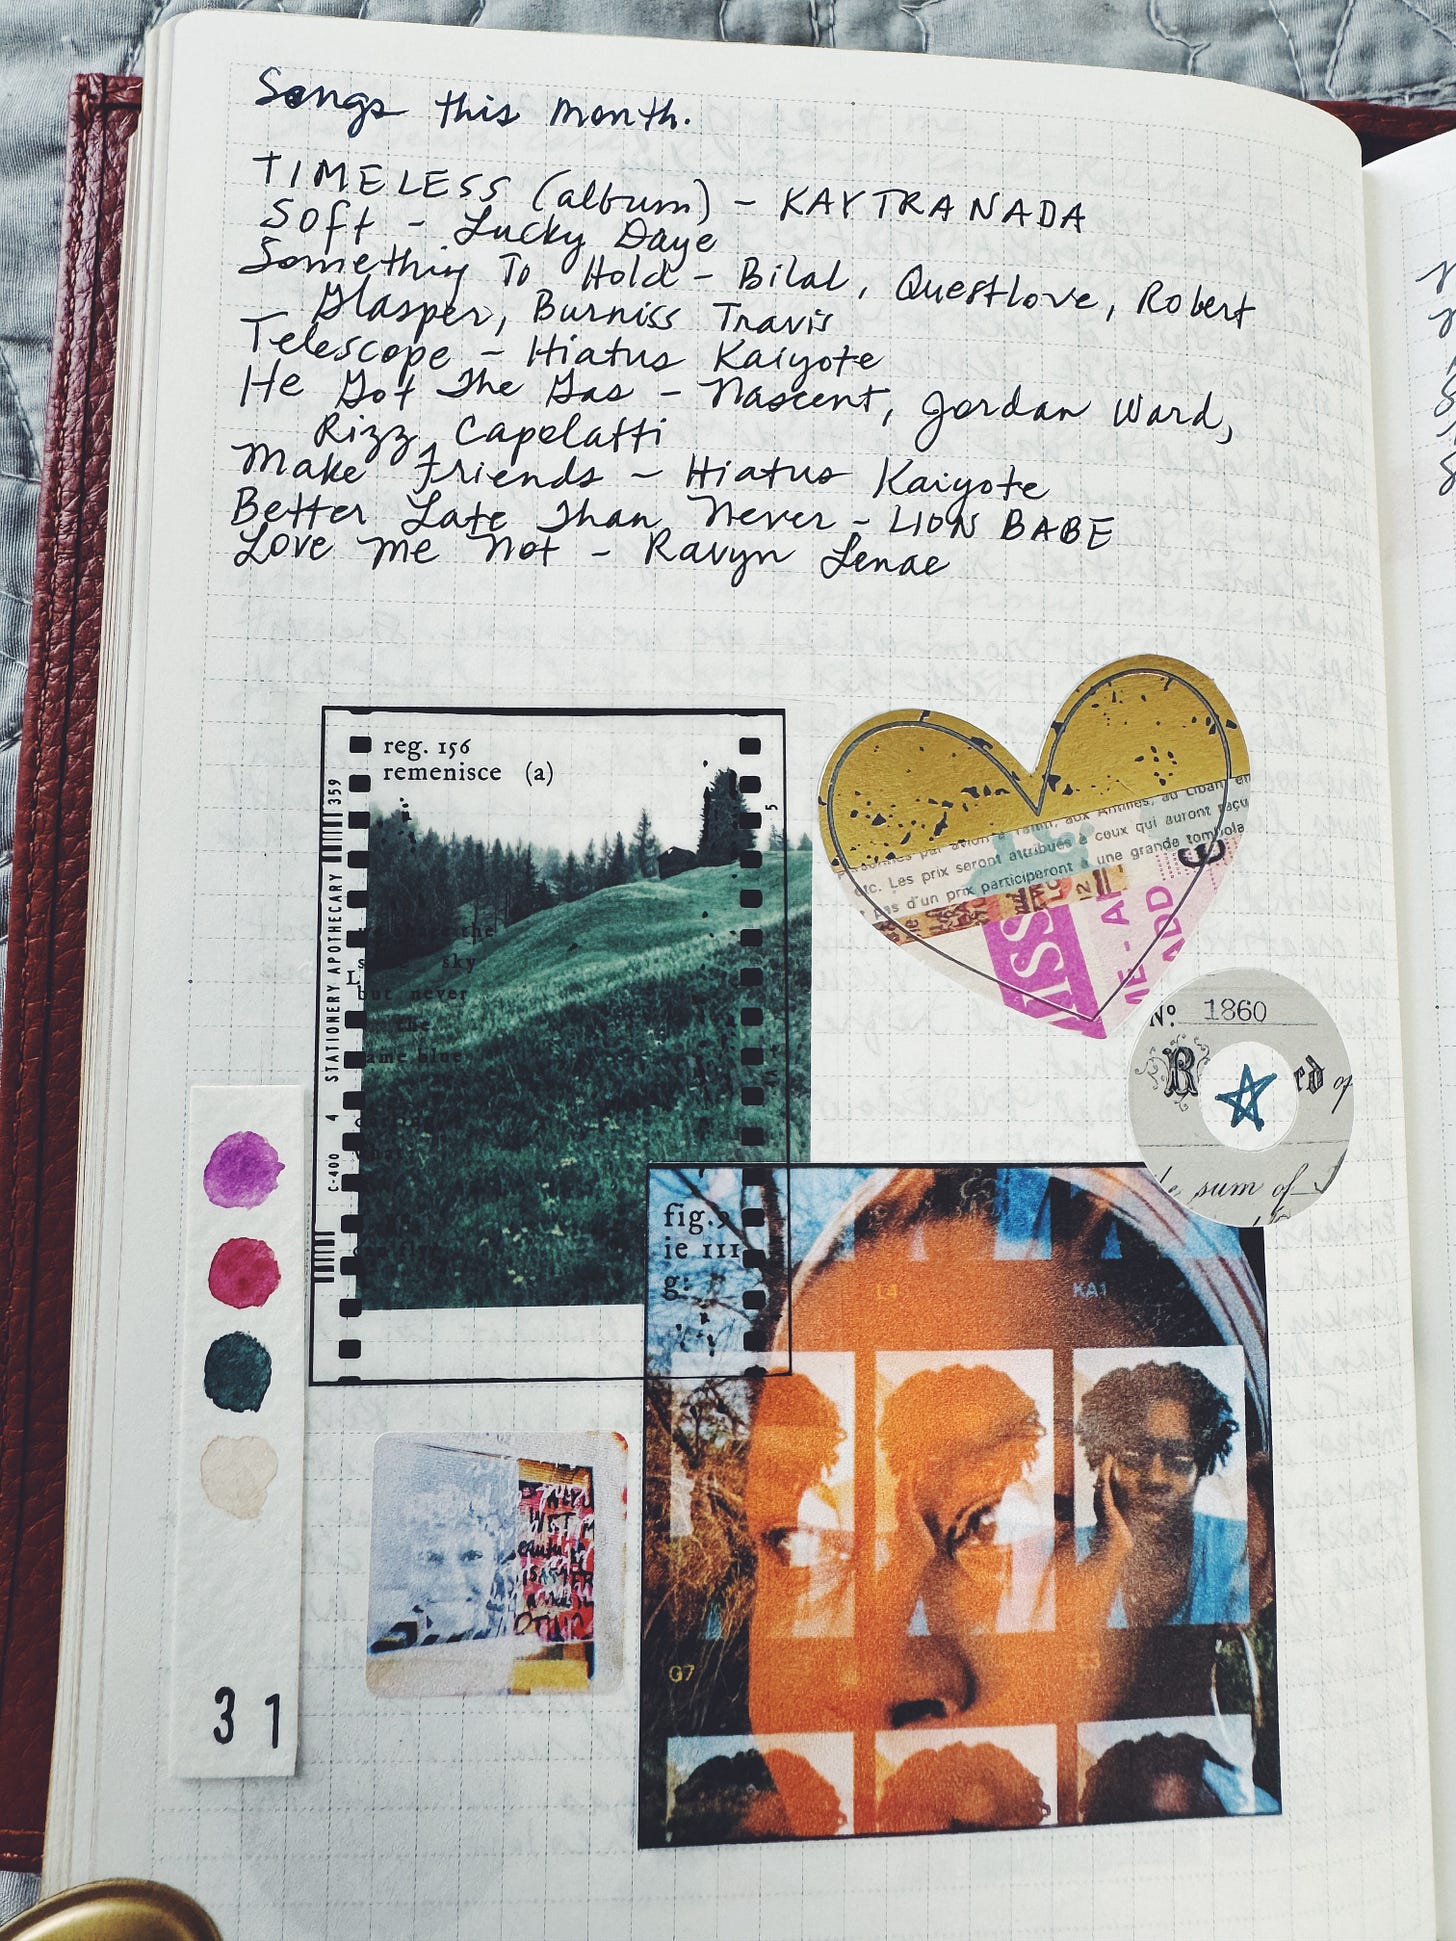 Songs this month.
TIMELESS (album) - KAYTRANADA
Soft - Lucky Daye
Something To Hold - Bilal, Questlove, Robert
Glasper, Burniss Travis
Telescope - Hiatus Kaiyote
He Got The Gas - Nascent, Jordan Ward,
Rizz Capolatti
Make Friends - Hiatus Kaiyote
Better Late Than Never - LION BABE
Love Me Not - Ravyn Lenae
reg. 156
remenisce (a)
359
STATIONERY APOTHECARY
4
C-400
5
the
sky
but never
the
ame blue
par avion à Tahiti, aux Antilles, au Liban, en
etc. Les prix seront attribués à ceux qui auront reçu
pas d'un prix participeront à une grande tombola
No. 1860
R
rd of
sum of
fig.
ie 111
g:
L4
KA1
G7
31